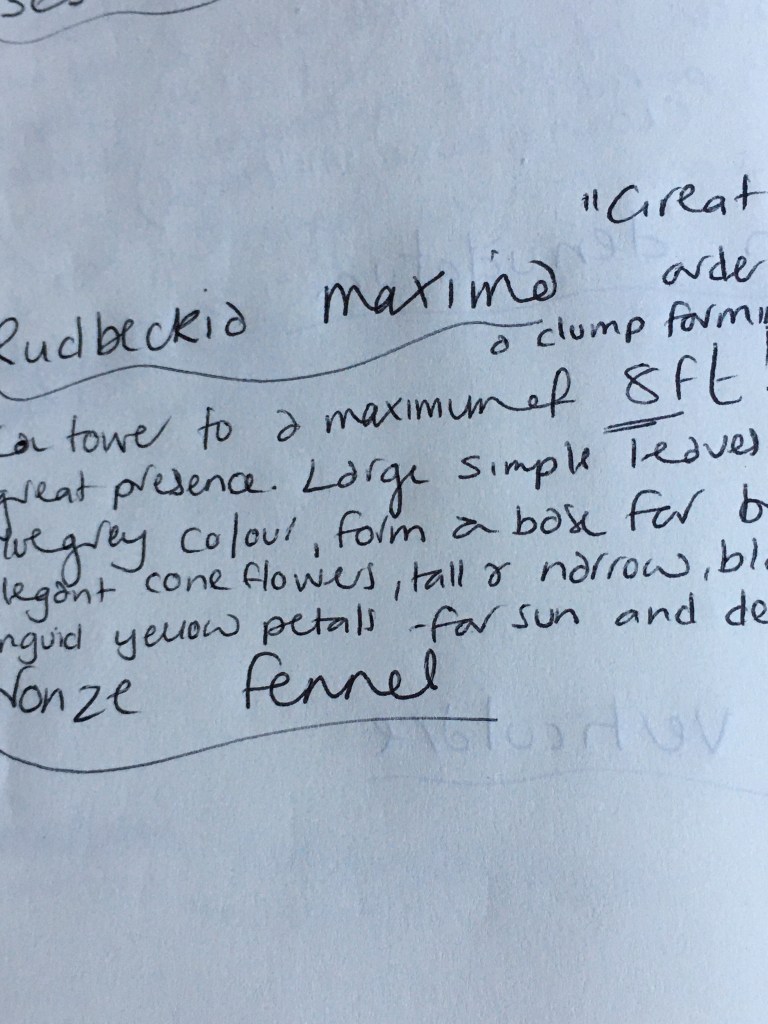 "Great
Rudbeckia maxima
orde
a clump formi
towe to a maximum of 8ft!
great presence. Large simple leaves
grey colour, form a base for b
legant cone flowers, tall & narrow, bla
nguid yellow petals - for sun and de
ronze fennel